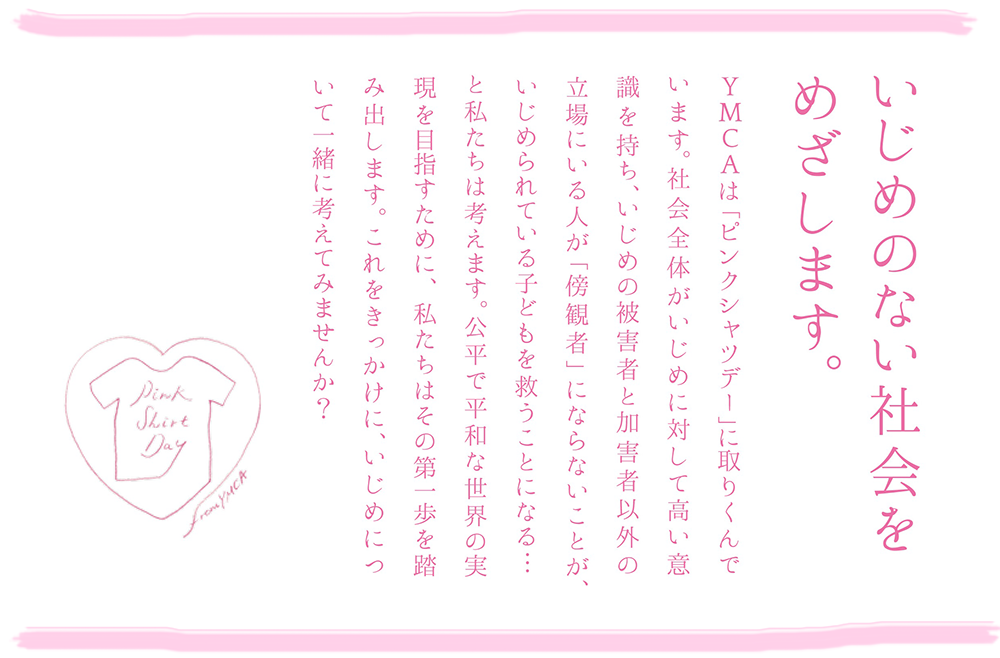 いじめのない社会を
めざします。
YMCAは「ピンクシャツデー」に取りくんで
います。社会全体がいじめに対して高い意
識を持ち、いじめの被害者と加害者以外の
立場にいる人が「傍観者」にならないことが、
いじめられている子どもを救うことになる…
と私たちは考えます。公平で平和な世界の実
現を目指すために、私たちはその第一歩を踏
み出します。これをきっかけに、いじめにつ
いて一緒に考えてみませんか？
Pink
Shirt
Day
from YMCA